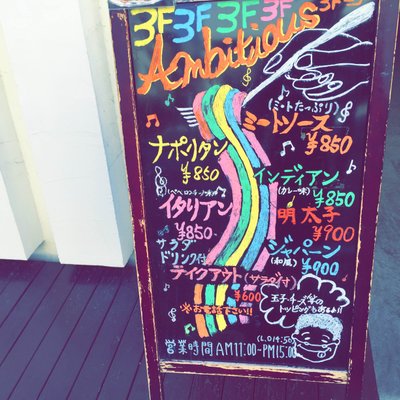 3F 3F 3F 3F 3F 3F
Ambitious
(ミートたっぷり)
ミートソース
¥850
ナポリタン
¥850
インディアン
(カレー味)
¥850
イタリアン
¥850
明太子
¥900
サラダ
ドリンク付
ジャパーン
(和風)
¥900
テイクアウト(サラダ付)
¥600
※お電話下さい!!
玉子・チーズ等の
トッピングもあるよ!!
(L.O14:50)
営業時間 AM11:00-PM15:00